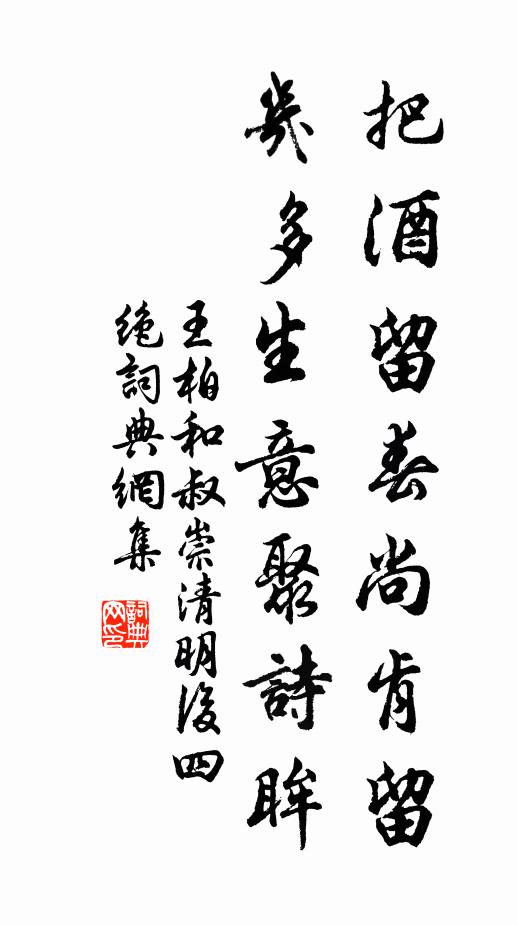 把酒留春尚肯留
幾多生意聚詩眸
王柏和叔崇清明後四
絶詞典網集
詞典网印